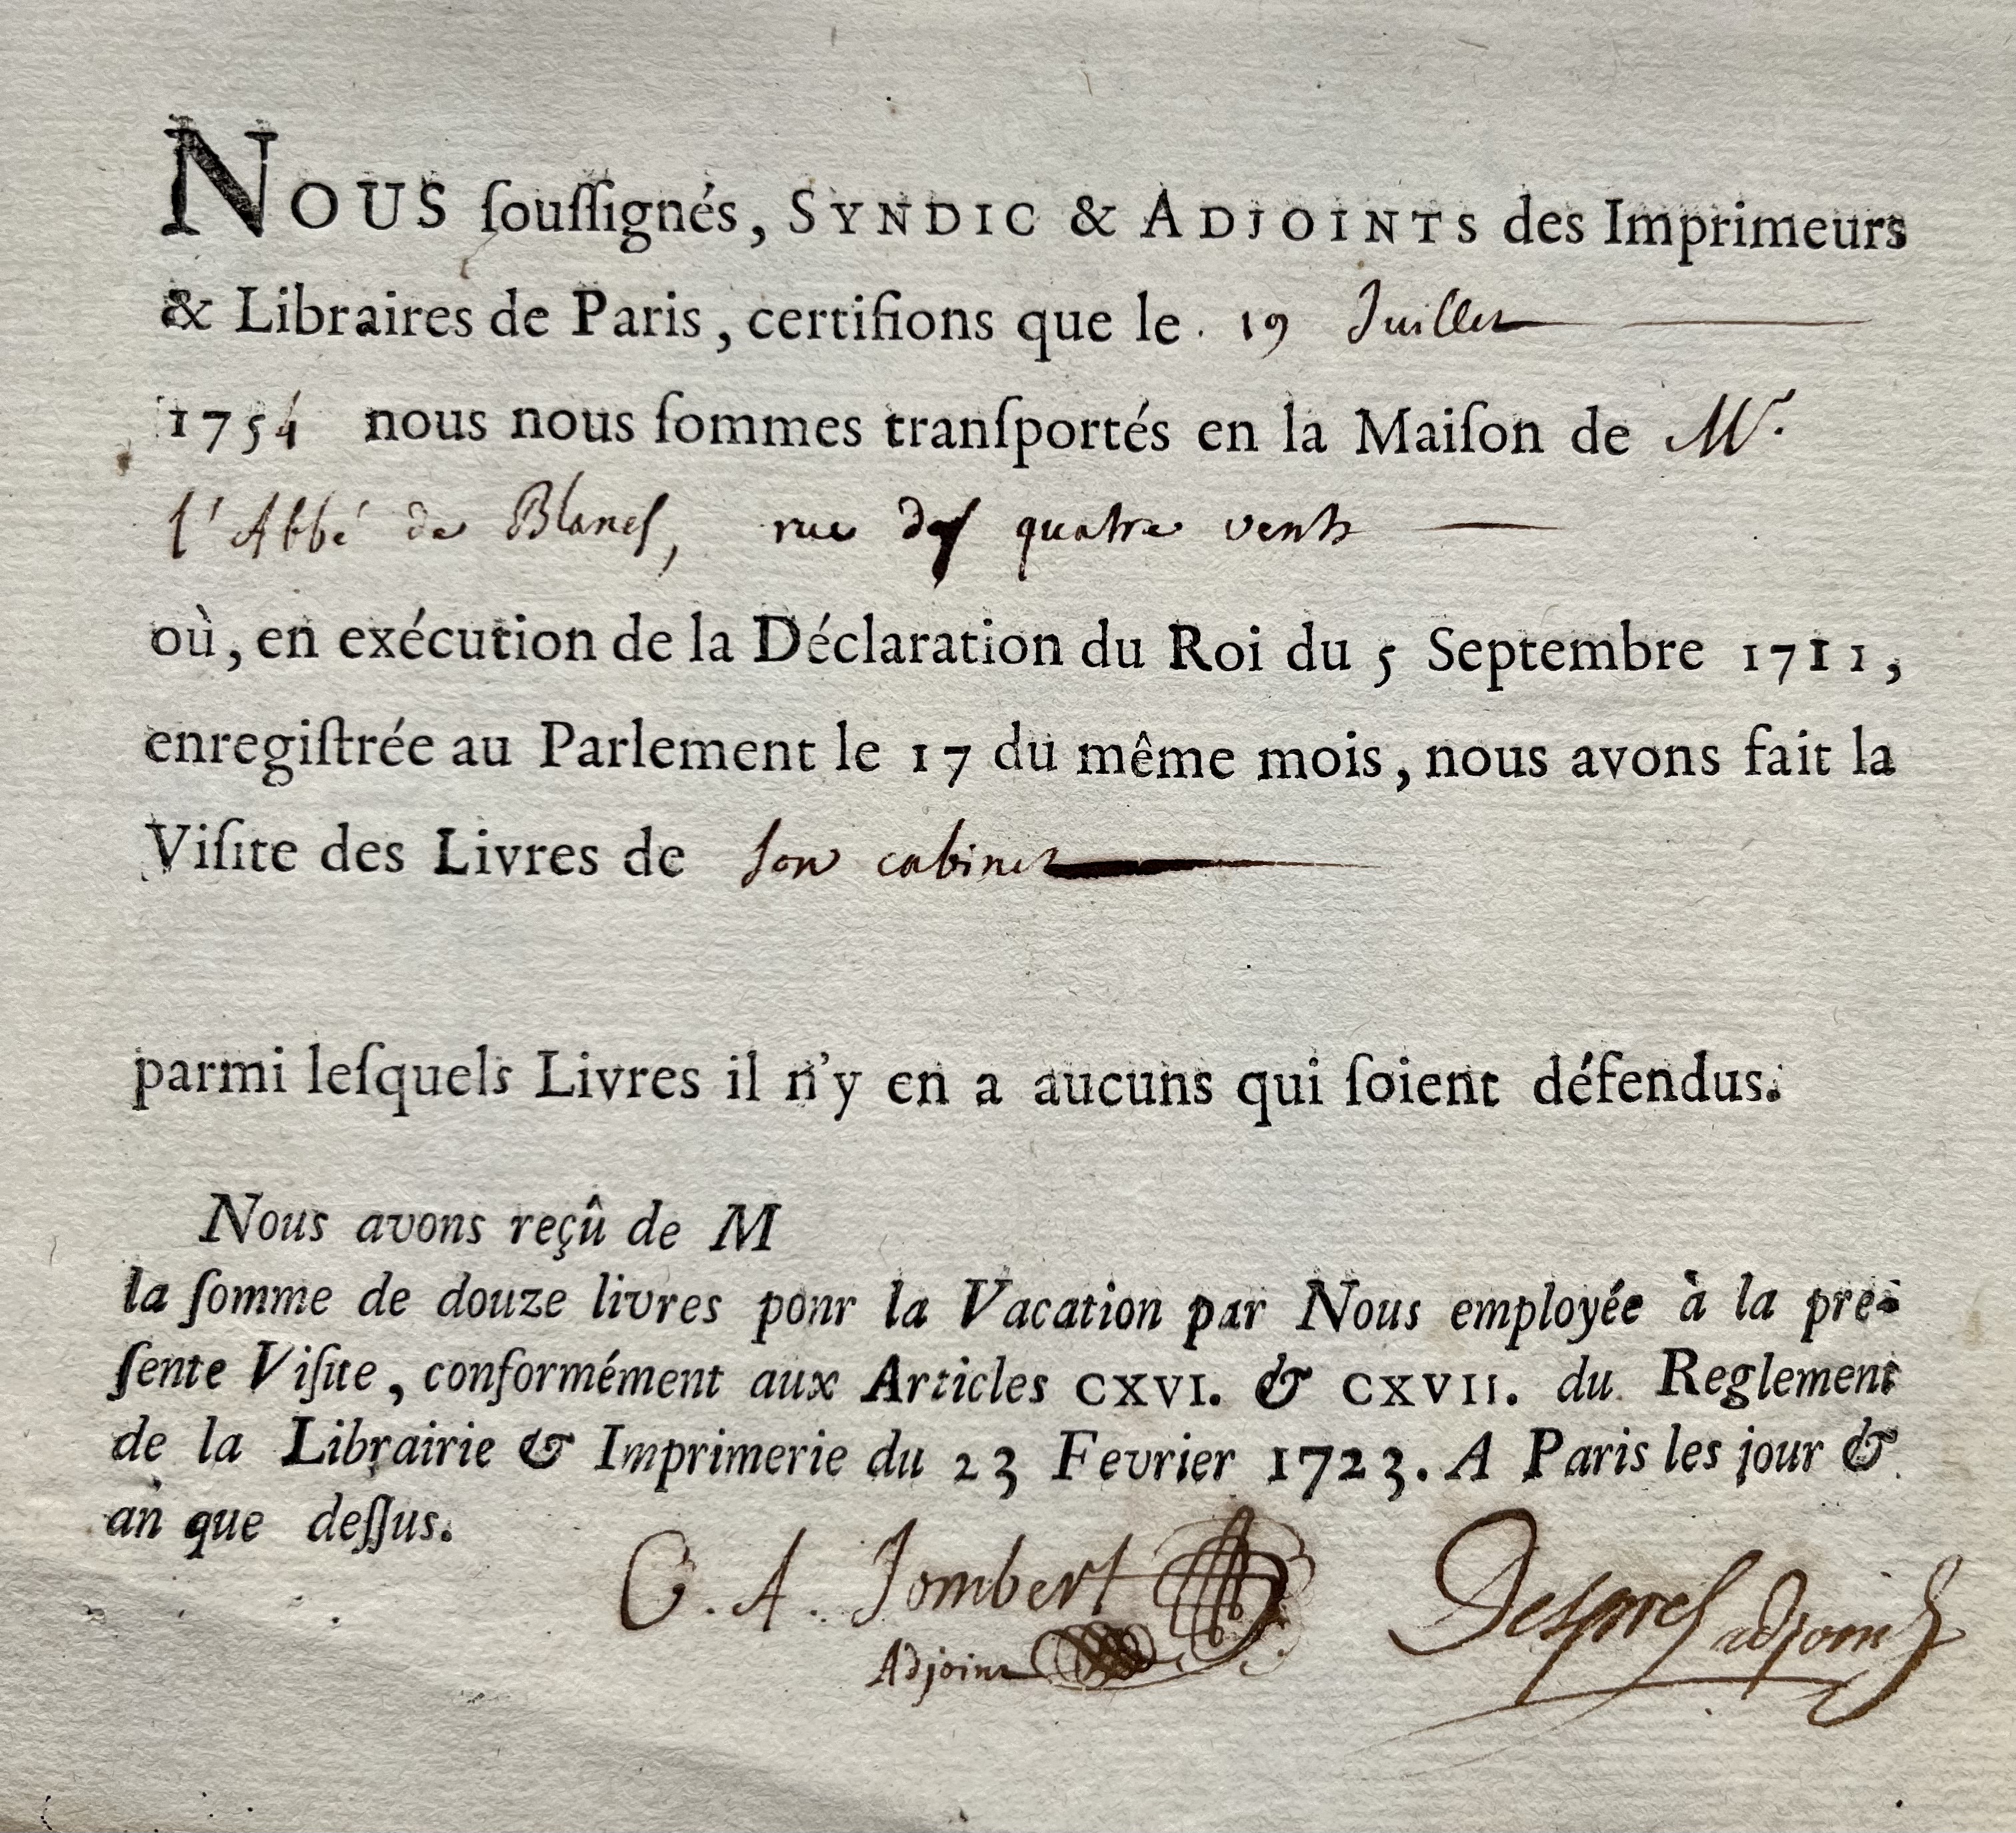 NOUS ſouſſignés, SYNDIC & ADJOINTS des Imprimeurs
& Libraires de Paris, certifions que le . 19 Juillet
1754 nous nous ſommes tranſportés en la Maiſon de Mr.
l'Abbé de Blanes, rue des quatre vents
où, en exécution de la Déclaration du Roi du 5 Septembre 1711,
enregiſtrée au Parlement le 17 du même mois, nous avons fait la
Viſite des Livres de son cabinet
parmi leſquels Livres il n'y en a aucuns qui ſoient défendus.
Nous avons reçû de M
la ſomme de douze livres ponr la Vacation par Nous employée à la pre-
ſente Viſite, conformément aux Articles CXVI. & CXVII. du Reglement
de la Librairie & Imprimerie du 23 Fevrier 1723. A Paris les jour &
an que deſſus.
C. A. Jombert Desprez adjoint
Adjoint